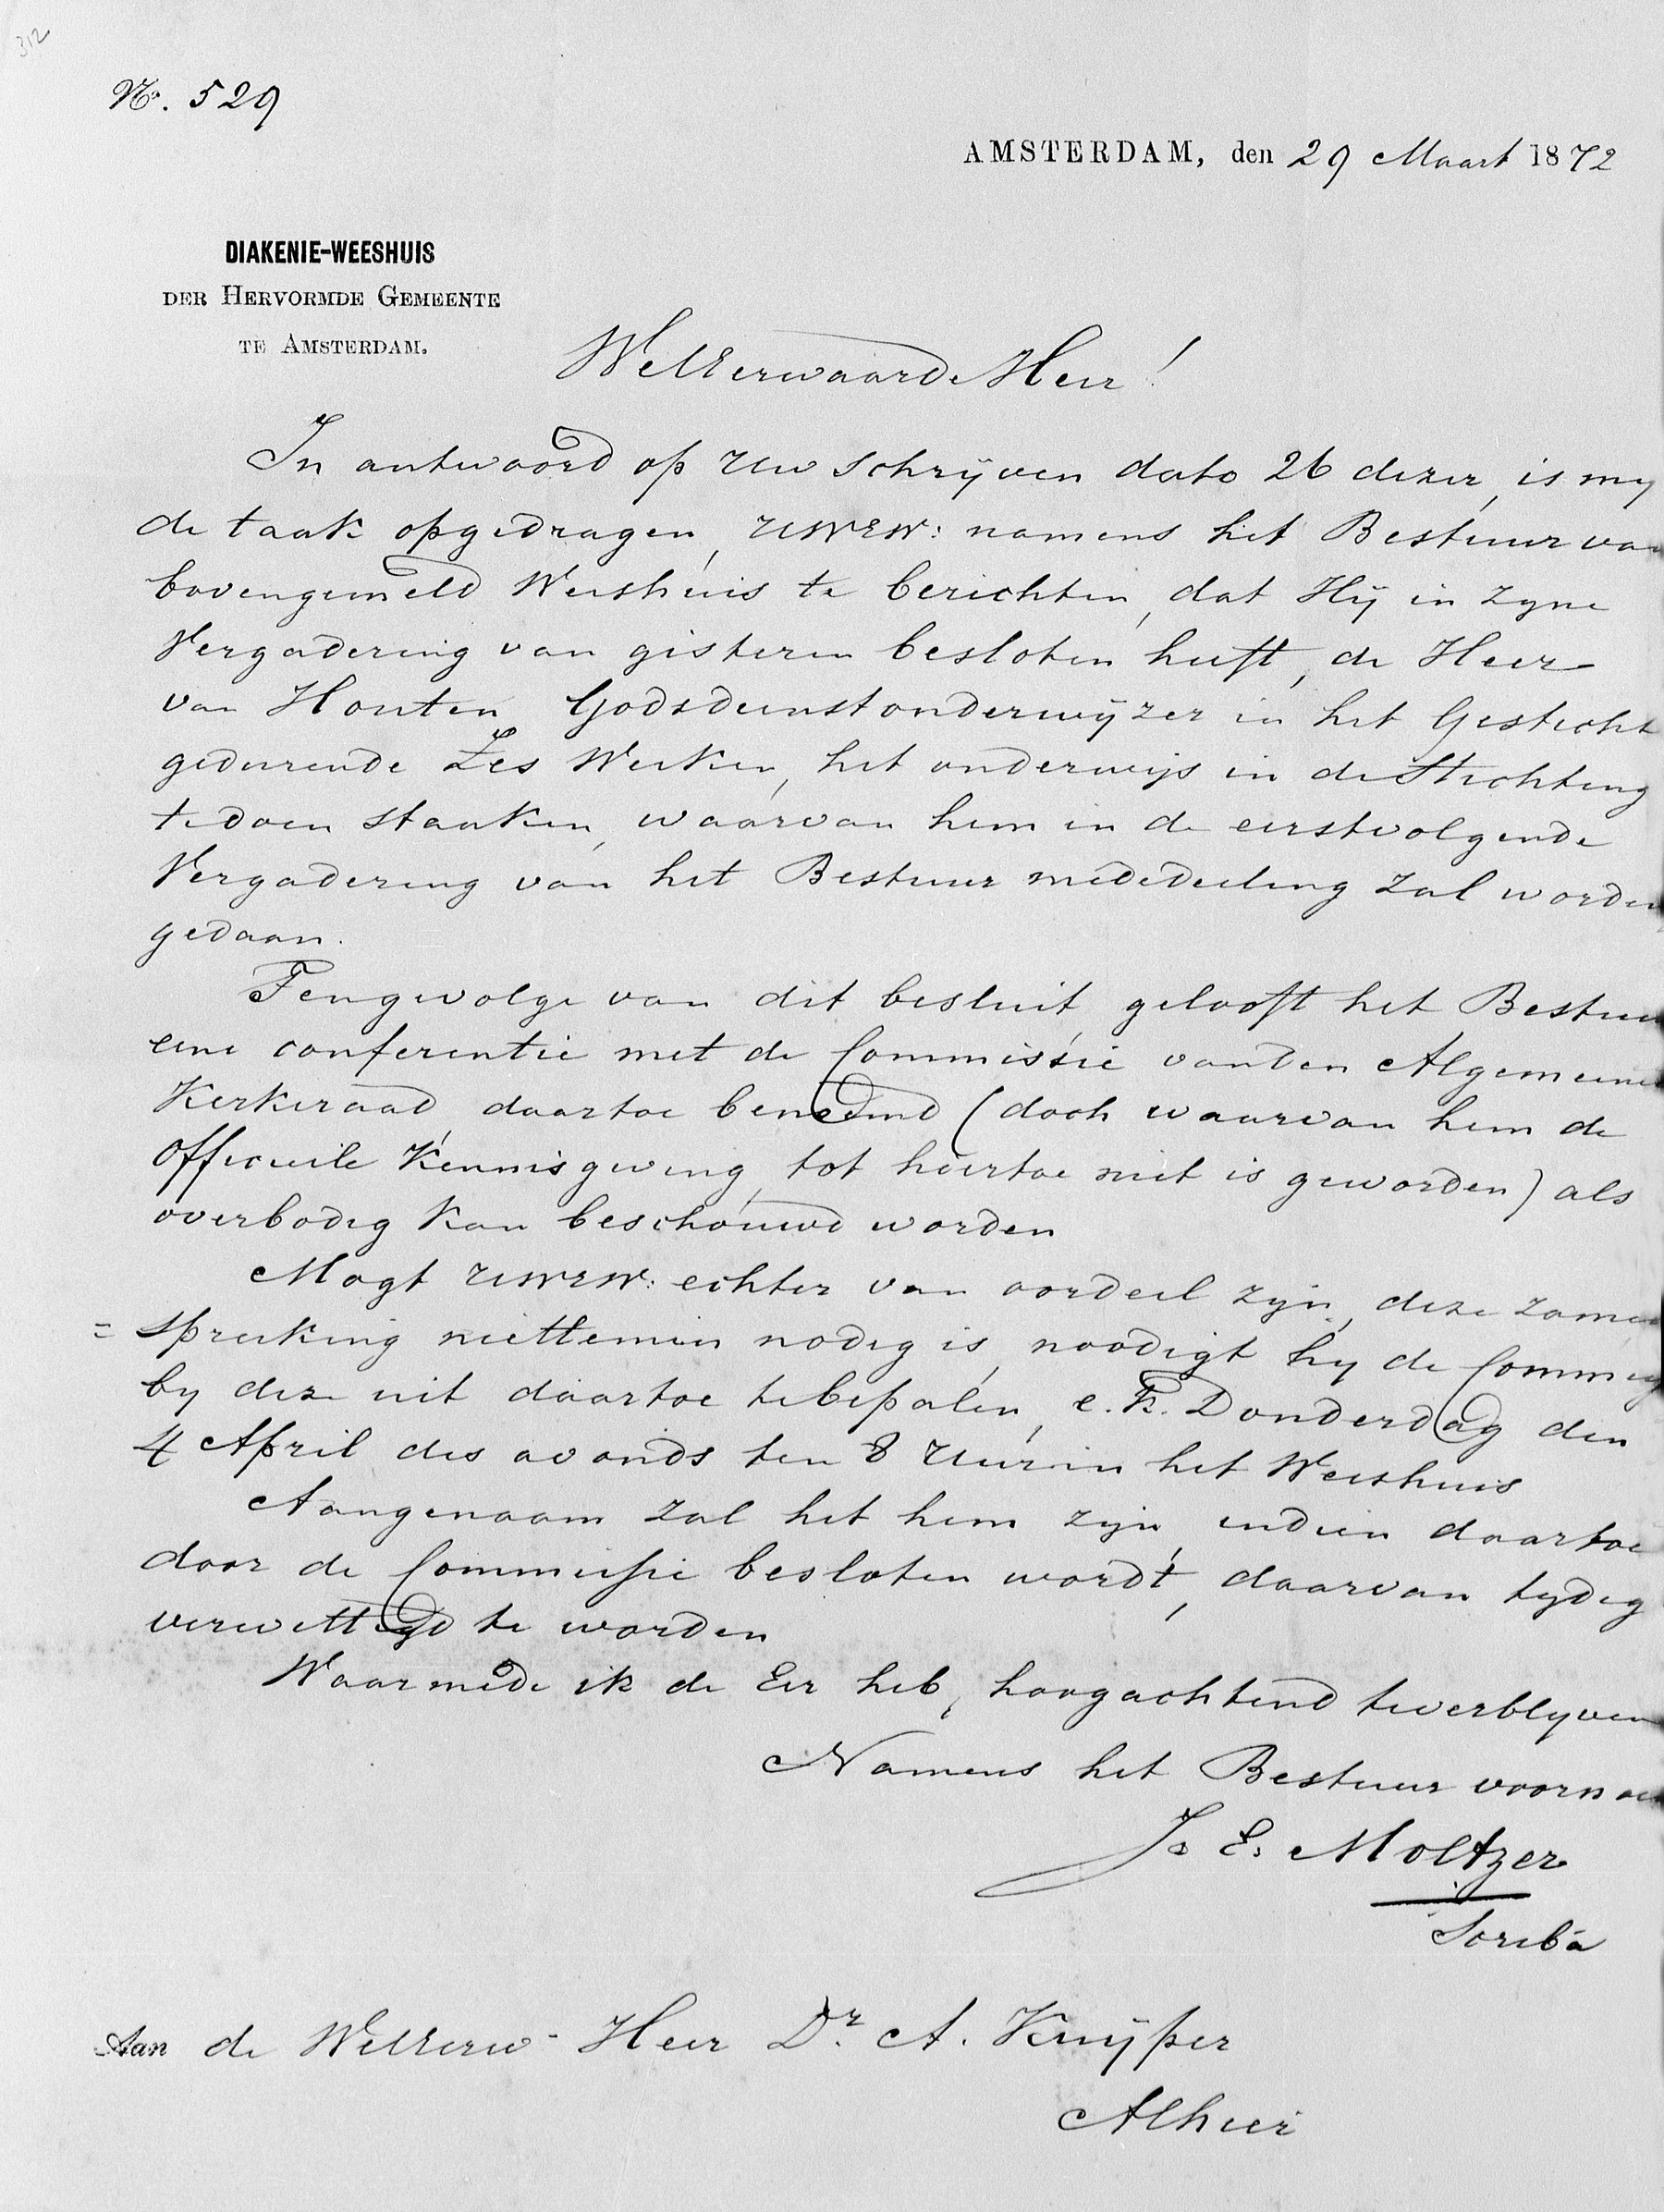 312
No. 529
AMSTERDAM, den 29 Maart 1872
DIAKENIE-WEESHUIS
DER HERVORMDE GEMEENTE
TE AMSTERDAM.
WelEerwaarde Heer!
In antwoord op Uw schrijven dato 26 dezer, is my
de taak opgedragen, UWEW: namens het Bestuur van
bovengemeld Weeshuis te berichten, dat Hij in zyne
Vergadering van gisteren besloten heeft, de Heer
van Houten Godsdienstonderwijzer in het Gesticht
gedurende Zes Weeken, het onderwijs in de Stichting
te doen staaken, waarvan hem in de eerstvolgende
Vergadering van het Bestuur mededeeling zal worden
gedaan.
Tengevolge van dit besluit, gelooft het Bestuur
eene conferentie met de Commissie van den Algemeenen
Kerkeraad, daartoe benoemd (doch waarvan hem de
Officieele Kennisgeving, tot hiertoe niet is geworden) als
overbodig kan beschouwd worden
Mogt UWEW: echter van oordeel zijn, deze zamen
= spreeking niettemin nodig is, noodigt hy de Commissie
by deze uit daartoe te bepalen, e.k. Donderdag den
4 April des avonds ten 8 Uur in het Weeshuis
Aangenaam zal het hem zijn, indien daartoe
door de Commissie besloten wordt, daarvan tydig
verwittigd te worden
Waarmede ik de Eer heb, hoogachtend te verblyven
Namens het Bestuur voornoemd
Js E. Moltzer
Scriba
Aan de WelEerw Heer Dr. A. Kuijper
Alhier